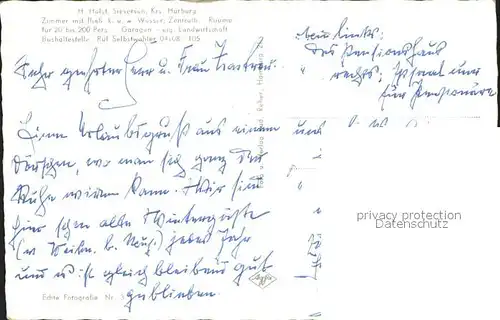 H. Holst, Sieversen, Krs. Harburg
Zimmer mit fließ. k. u. w. Wasser, Zentralh. Räume
für 20 bis 200 Pers. Garagen - eig. Landwirtschaft
Bushaltestelle - Ruf Selbstwähler 04108 105
oben links:
Das Pensionshaus
rechts: 
für Pensionäre
Sehr geehrter Herr u. Frau
Einen Urlaubsgruß aus einem
Dörfchen, wo man sich ganz der
Ruhe widmen kann. Wir sind
hier schon alte Wintergäste
(v. Weihn. b. Neuj.) jedes Jahr
und es ist gleichbleibend gut
geblieben.
und
Echte Fotografie Nr. 5
Agfa
privacy protection
Datenschutz